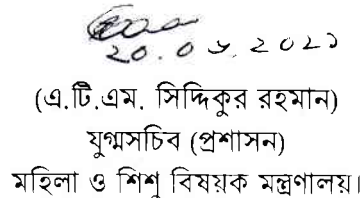 (এ.টি.এম. সিদ্দিকুর রহমান)
যুগ্মসচিব (প্রশাসন)
মহিলা ও শিশু বিষয়ক মন্ত্রণালয়।